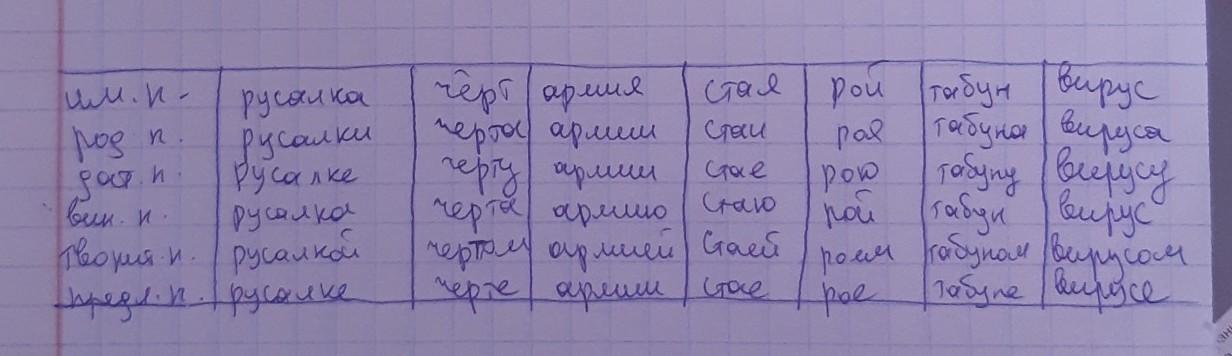 им. п - русалка чёрт армия стая рой табун вирус
род п. русалки черта армии стаи роя табуна вируса
дат. п. русалке черту армии стае рою табуну вирусу
вин. п. русалка черта армию стаю рой табун вирус
творит. п. русалкой чертом армией стаей роем табуном вирусом
предл. п. русалке черте армии стае рое табуне вирусе